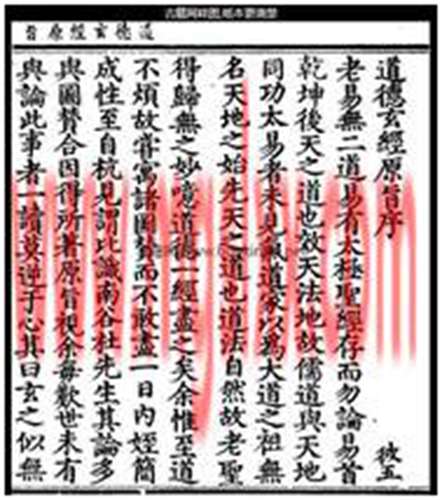 道德玄經原旨
道德玄經原旨序 彼五
老易無二道易有太極聖經存而勿論易首
乾坤後天之道也效天法地故儒道與天地
同功太易者未見氣道家以為大道之祖無
名天地之始先天之道也道法自然故老聖
得歸無之妙噫道德一經盡之矣余惟至道
不煩故甞寓諸圖贊而不敢盡一日內姪簡
成性至自杭見謂比識南谷杜先生其論多
與圖贊合因得所著原旨視余每歎世未有
與論此事者一讀莫逆于心其曰玄之似無